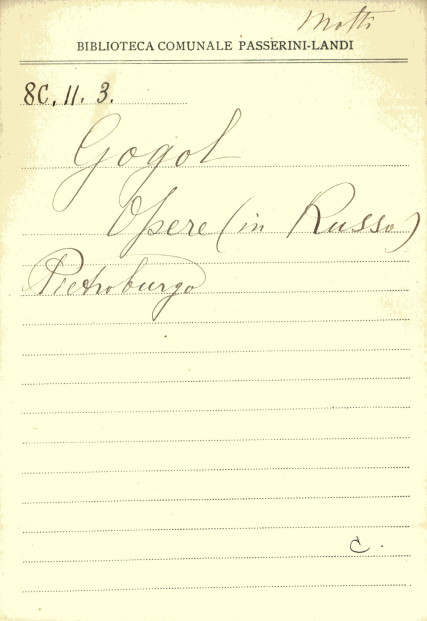 Motti
BIBLIOTECA COMUNALE PASSERINI-LANDI
8C. 11. 3.
Gogol
Opere (in Russo)
Pietroburgo
C.